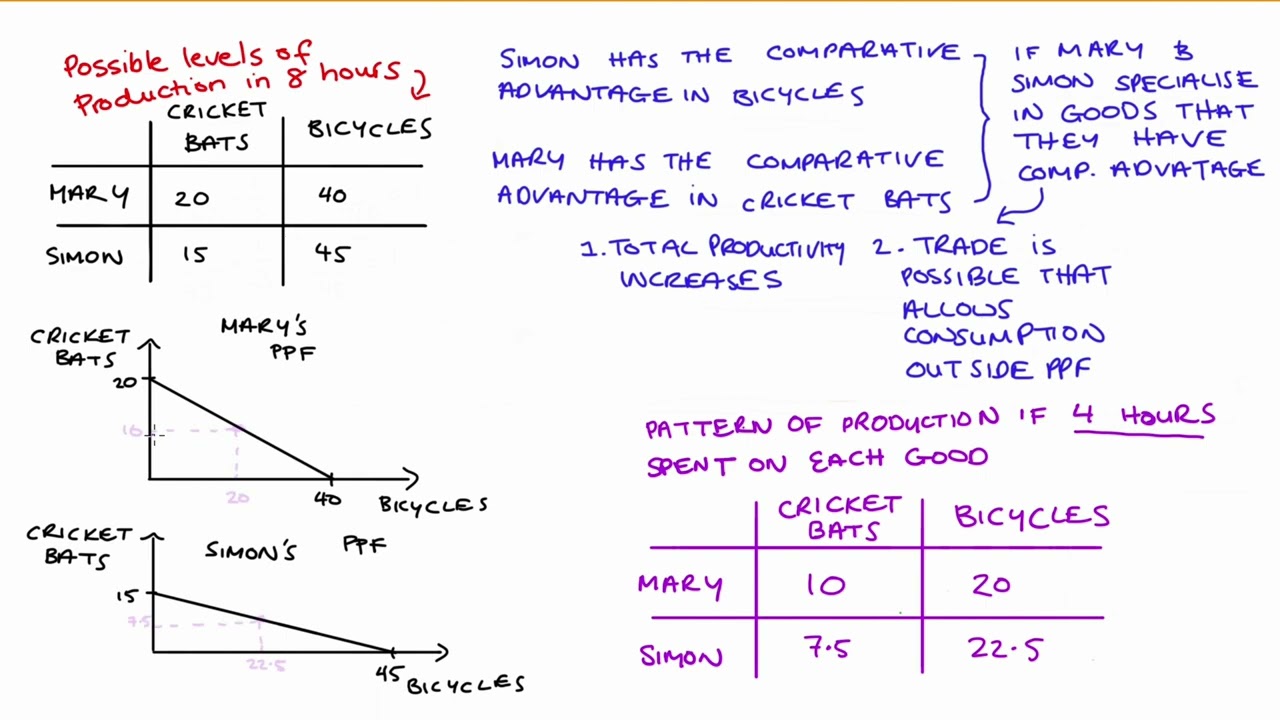 Possible levels of
Production in 8 hours
CRICKET BATS BICYCLES
MARY 20 40
SIMON 15 45
SIMON HAS THE COMPARATIVE
ADVANTAGE IN BICYCLES
MARY HAS THE COMPARATIVE
ADVANTAGE IN CRICKET BATS
IF MARY &
SIMON SPECIALISE
IN GOODS THAT
THEY HAVE
COMP. ADVATAGE
1. TOTAL PRODUCTIVITY
INCREASES
2. TRADE IS
POSSIBLE THAT
ALLOWS
CONSUMPTION
OUTSIDE PPF
MARY'S
PPF
CRICKET
BATS
20
10
20
40
BICYCLES
SIMON'S PPF
CRICKET
BATS
15
7.5
22.5
45
BICYCLES
PATTERN OF PRODUCTION IF 4 HOURS
SPENT ON EACH GOOD
CRICKET BATS BICYCLES
MARY 10 20
SIMON 7.5 22.5